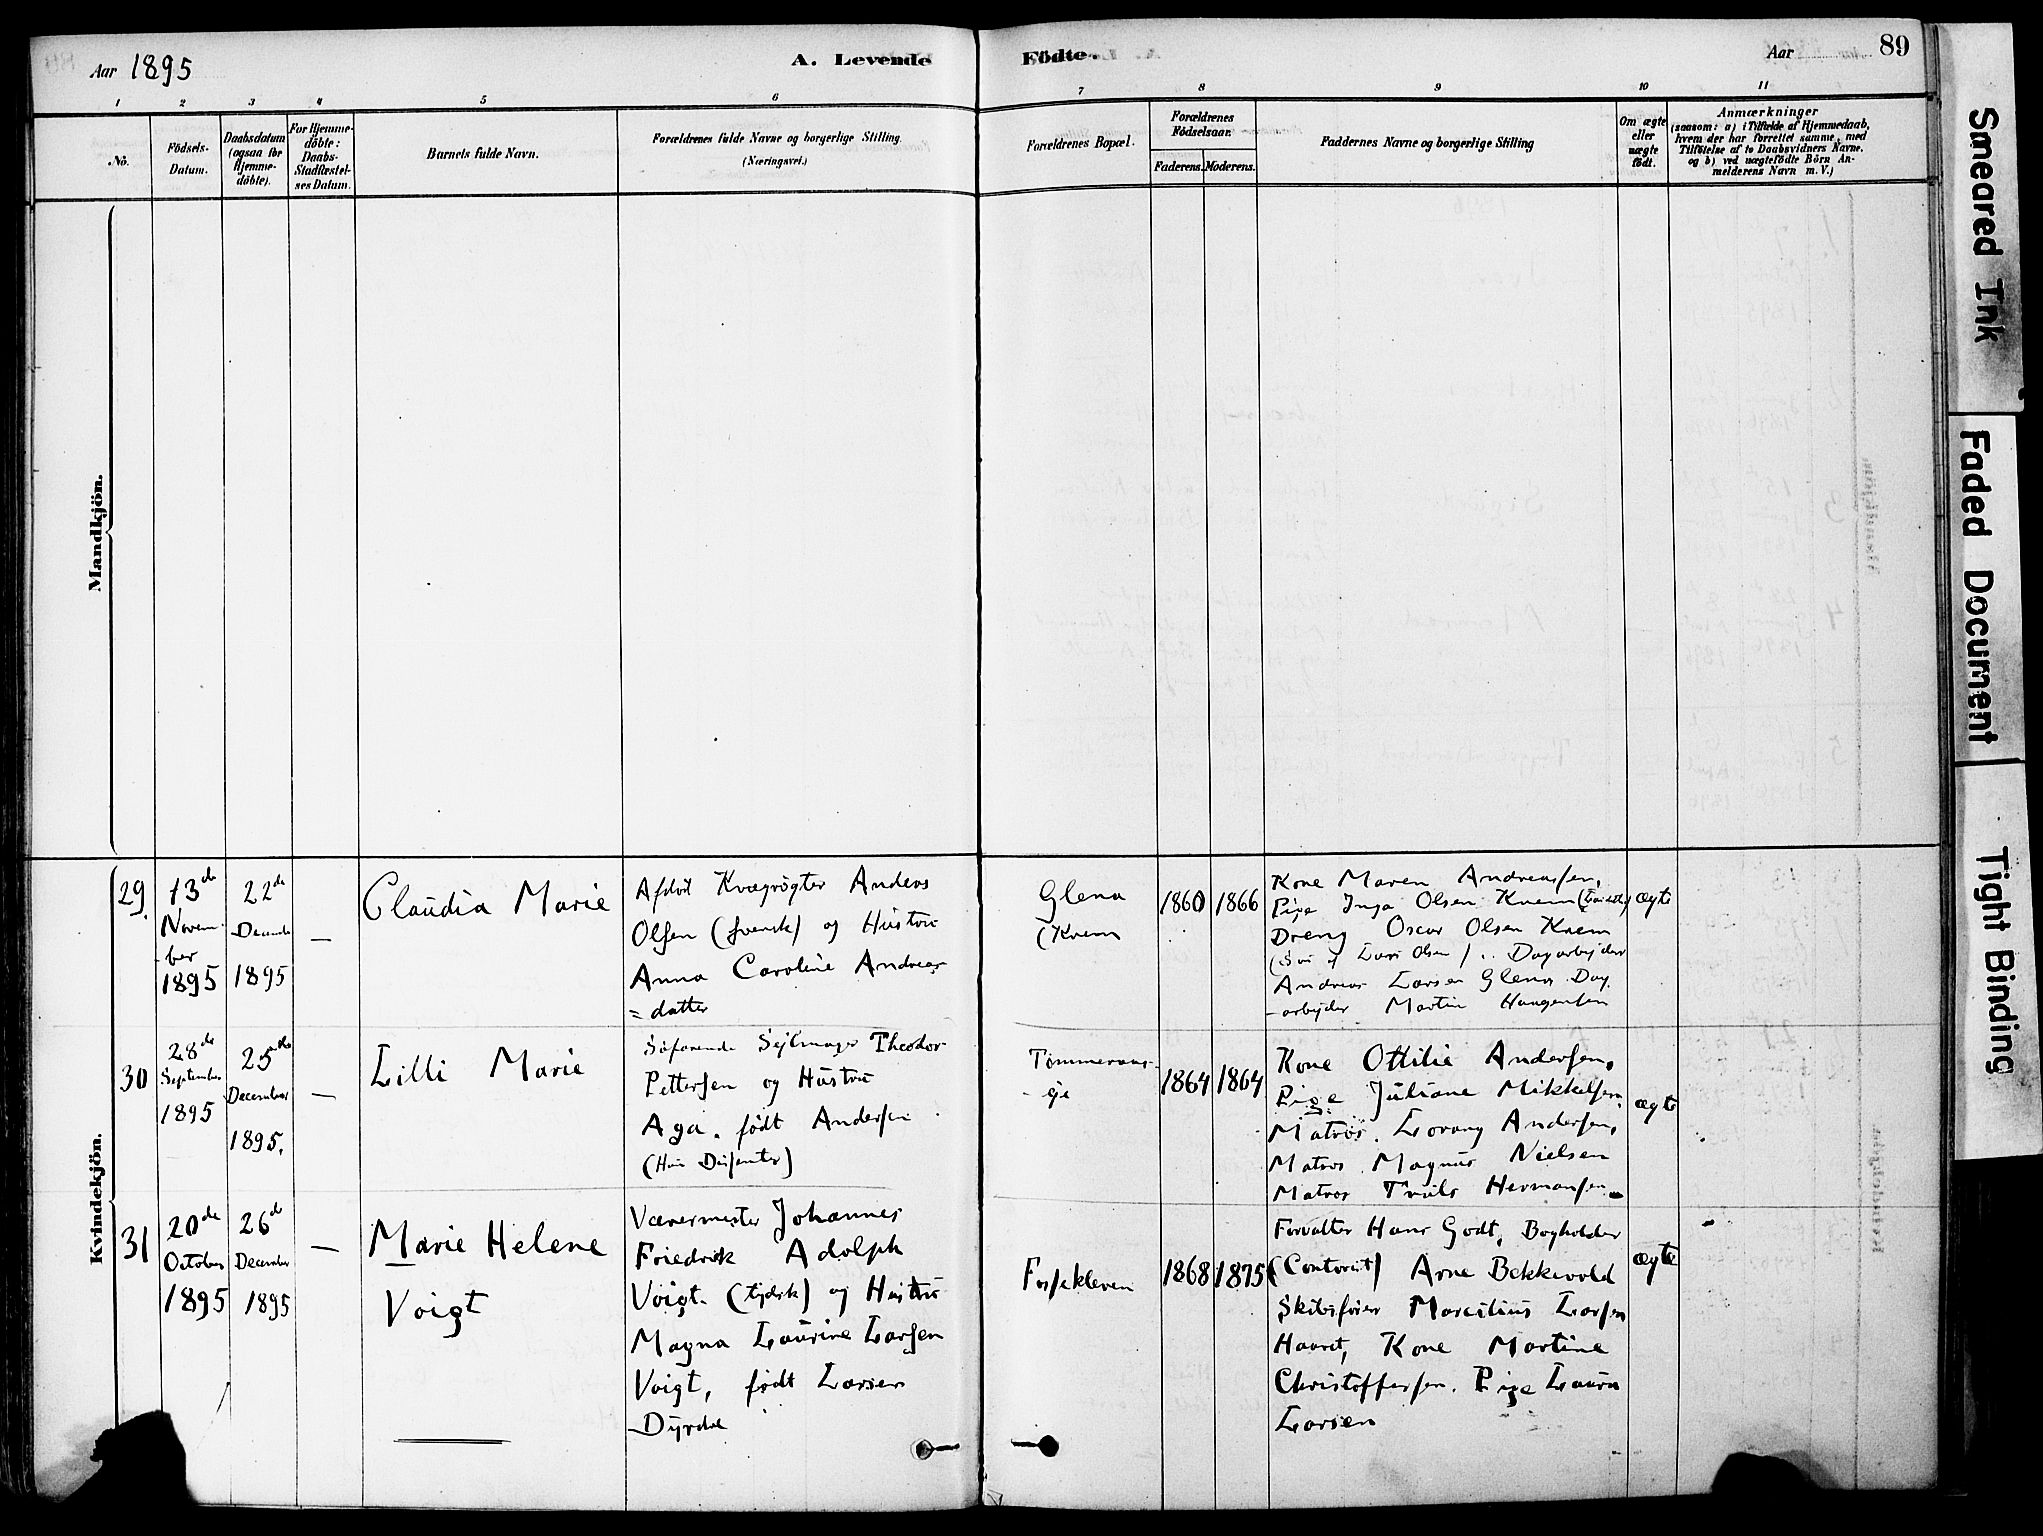 Aar 1895
A. Levende Födte.
Aar
89
1 2 3 4 5 6 7 8 9 10 11
No.
Födsels-
Datum.
Daabsdatum
(ogsaa for
Hjemme-
döbte).
For Hjemme-
döbte:
Daabs-
Stadfæstel-
ses Datum.
Barnets fulde Navn.
Forældrenes fulde Navne og borgerlige Stilling.
(Næringsvei.)
Forældrenes Bopæl.
Forældrenes
Födselsaar.
Faderens. Moderens.
Faddernes Navne og borgerlige Stilling
Om ægte
eller
uægte
födt.
Anmærkninger
(saasom: a) i Tilfælde af Hjemmedaab,
hvem der har forrettet samme, med
Tilföielse af to Daabsvidners Navne,
og b) ved uægtefödte Börn An-
melderens Navn m. V.)
Mandkjön.
Kvindekjön.
29.
13de
Novem-
ber
1895
22de
1895
—
Claudia Marie
Kvægrøgter Anders
Olsen (svensk) og Hustru
Anna Caroline Andreas-
= datter
Glena
(Kvem
1860
1866
Kone Maren Andreassen,
Pige Inga Olsen Kvem
Dreng Oscar Olsen Kvem
(Søn af Lars Olsen) Dagarbejder
Andreas Larsen Glena, Dag
-arbejder Martin Haagensen
ægte
30
28de
September
1895
25de
December
1895.
—
Lilli Marie
Søfarende Sejlmager Theodor
Pettersen og Hustru
Aga. født Andersen
(Hun Dissenter)
1864
1864
Kone Ottilie Andersen,
Pige Juliane Mikkelsen,
Matros. Lorang Andersen,
Matros Magnus Nielsen
Matros Truls Hermansen
ægte
31
20de
October
1895
26de
December
1895
—
Marie Helene
Voigt
Værkmester Johannes
Friedrik Adolph
Voigt (tydsk) og Hustru
Magna Laurine Larsen
Voigt, født Larsen
Dyrdal
Fossekleven
1868
1875
Forvalter Hans Godt, Bogholder
(Contorist) Arne Bekkevold
Skibsfører Marcelius Larsen
Haaret, Kone Martine
Christoffersen. Pige Laura
Larsen
ægte
Smeared Ink
Faded Document
Tight Binding